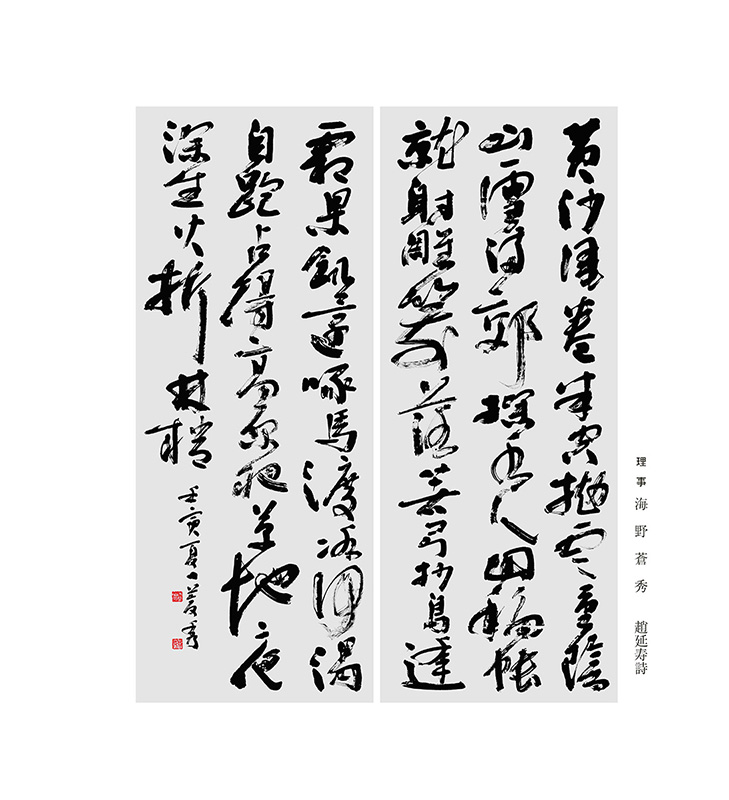 黄沙風巻半空拋雲重陰
山雪満郊探水人回移帳
就射雕箭落著弓抄鳥逢
霜果飢還啄馬渡氷河渴
自跑占得高原肥草地夜
深生火折林梢 壬寅夏 蒼秀
理事 海野蒼秀 趙延寿詩